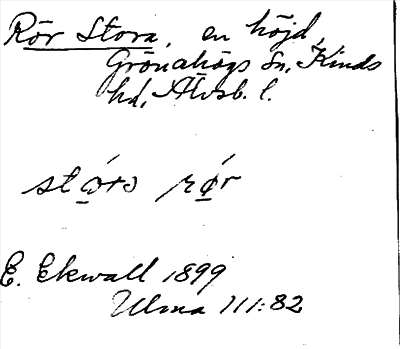 Rör Stora, en höjd,
Grönahögs Sn, Kinds
hd, Älvsb. l.
stọ́rɔ rǿ̣r
E. Ekwall 1899
Ulma 111:82